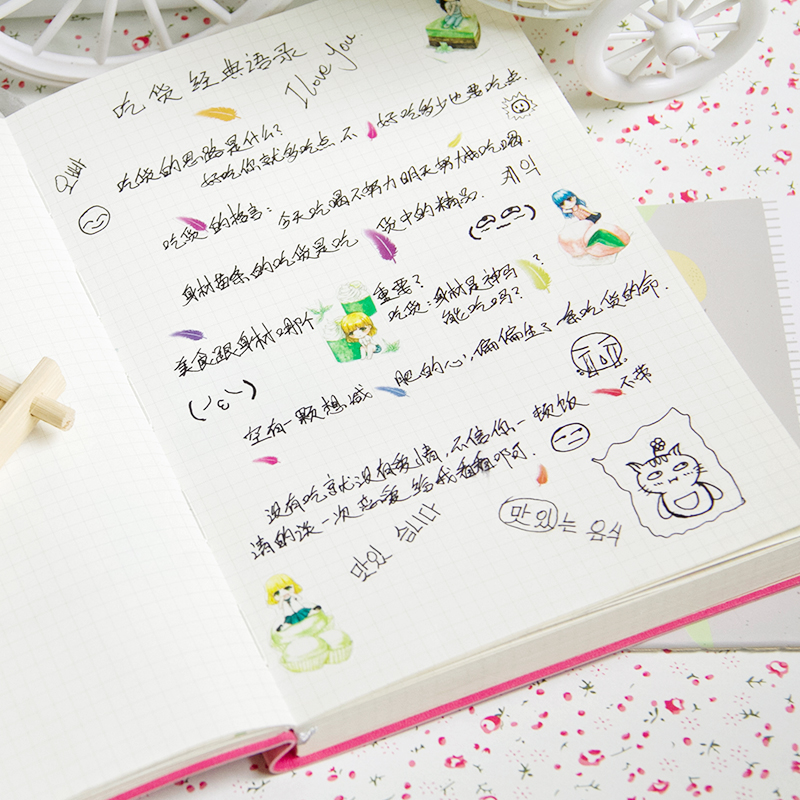 吃货经典语录
I love you
오빠
吃货的思路是什么?
好吃你就多吃点 不好吃多少也要吃点.
吃货的格言: 今天吃喝不努力 明天努力找吃喝.
身材苗条的吃货是吃货中的精品.
美食跟身材哪个重要?
吃货:身材是神马?能吃吗?
空有一颗想减肥的心,偏偏生了条吃货的命.
没有吃就没有爱情,不信你一顿饭不带
请的谈一次恋爱给我看看啊.
맛있 습니다
맛있는 음식